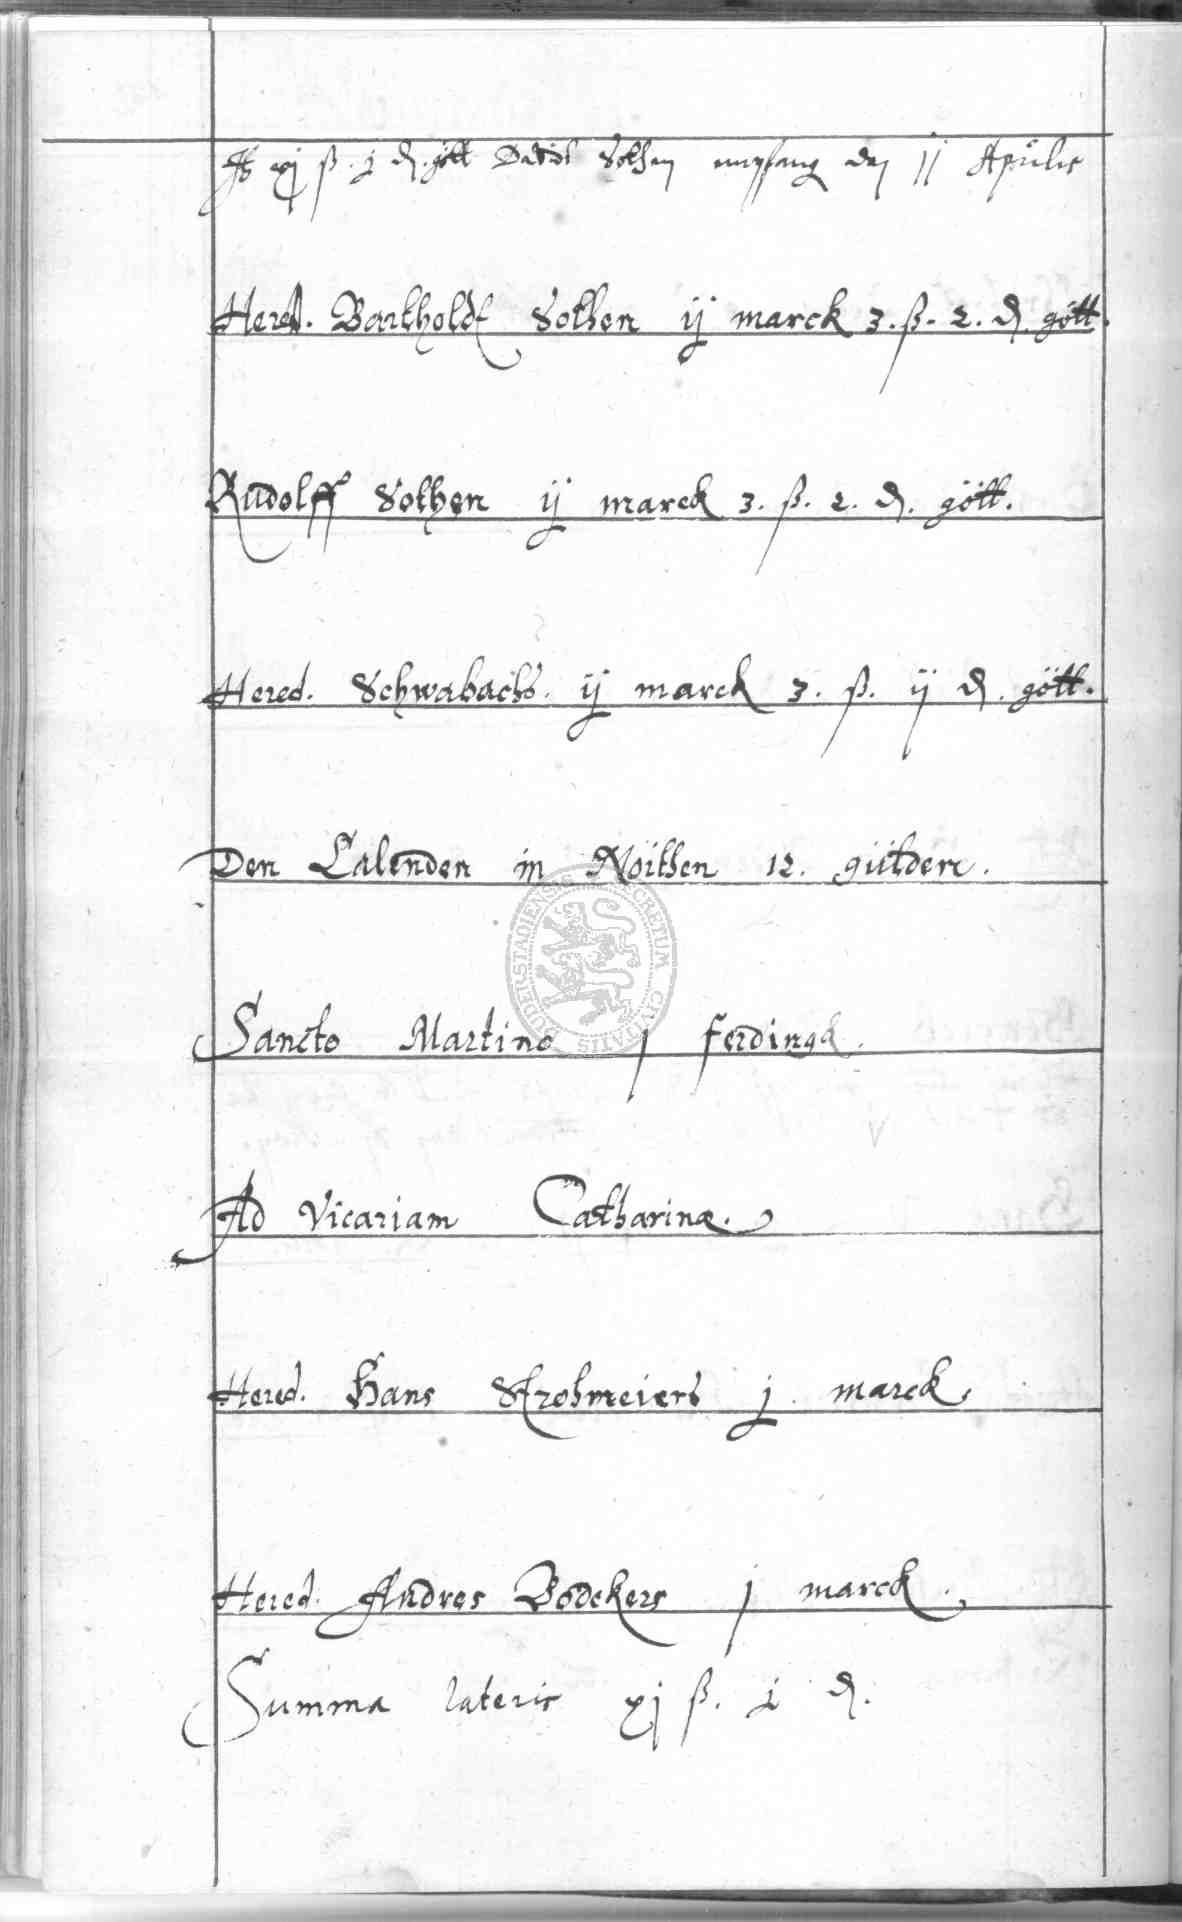 xj ß. j ₰. gött David Sothen empfang den 11 Aprilis
Hered. Bartholdt Sothen ij marck 3. ß. 2. ₰. gött.
Rudolff Sothen ij marck 3. ß. 2. ₰. gött.
Hered. Schwabachs. ij marck 3. ß. ij ₰. gött.
Den Calenden in Nöithen 12. gülden.
SECRETUM CIVITATIS DUDERSTADIENSIS
Sancto Martino j ferdingk.
Ad Vicariam Catharinæ.
Hered. Hans Strohmeiers j marck.
Hered. Andres Bodekers j marck.
Summa lateris xj ß. j ₰.